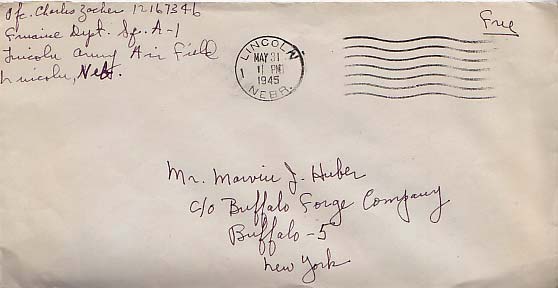 Pfc. Charles Zacher 12167346
Free
Dept. Sq. A-1
Lincoln Army Air Field
Lincoln, Nebr.
LINCOLN
1
MAY 31
PM
1945
NEBR.
Mr. Marvin J. Huber
c/o Buffalo Forge Company
Buffalo - 5
New York